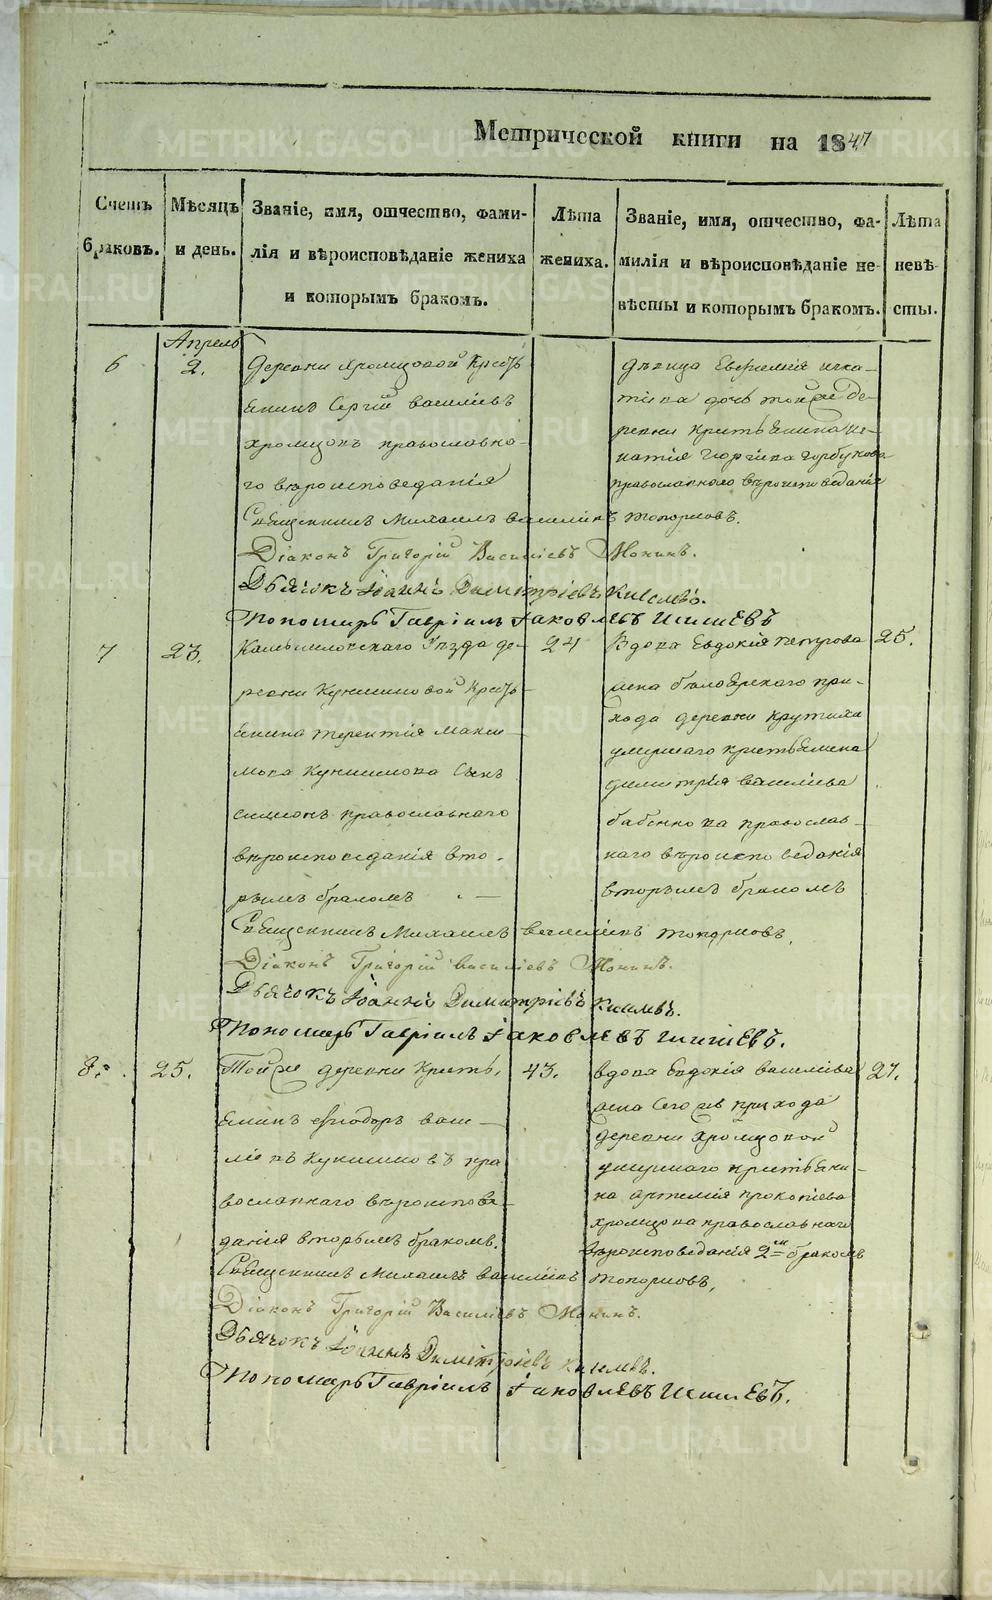 Метрической книги на 1847
Счетъ браковъ.
Мѣсяцъ и день.
Званіе, имя, отчество, фами-
лія и вѣроисповѣданіе жениха
и которымъ бракомъ.
Лѣта жениха.
Званіе, имя, отчество, фа-
милія и вѣроисповѣданіе не-
вѣсты и которымъ бракомъ.
Лѣта невѣ-
сты.
6
Апрель
2.
Деревни Хромцовой Кресть
янинъ Сергій Василіевъ
Хромцовъ православна-
го вѣроисповеданія
дѣвица Евфимія игна-
тіева дочь тойже де-
ревни крестьянина иг-
натія Горбунова
православнаго вѣроисповеданія
Священникъ Михаилъ Василіевъ Топорковъ.
Діаконъ Григорій Василіевъ Монинъ.
Дьячокъ Іоаннъ Димитріевъ
Пономарь Гавріилъ Іаковлевъ
7
23.
Камышловскаго Уѣзда де-
ревни Кукшиновой Кресть-
янина терентія Макси-
мова сынъ
православнаго
вѣроисповеданія вто-
рымъ бракомъ
24
Вдова Евдокія петрова
жена бѣлоярскаго при-
хода деревни
умершаго крестьянина
димитрія Василіева
православ-
наго вѣроисповеданія
вторымъ бракомъ
25.
Священникъ Михаилъ Василіевъ Топорковъ.
Діаконъ Григорій Василіевъ Монинъ.
Дьячокъ Іоаннъ Димитріевъ
Пономарь Гавріилъ Іаковлевъ
8.
25.
Тойже деревни Кресть,
янинъ Василіевъ
пра
вославнаго вѣроисповѣ-
данія вторымъ бракомъ.
43.
вдова Евдокія василіева
жена сегоже прихода
деревни Хромцовой
умершаго крестьяни-
на артемія прокопіева
хромцова православнаго
вѣроисповеданія 2мъ бракомъ
27.
Священникъ Михаилъ Василіевъ Топорковъ,
Діаконъ Григорій Василіевъ Монинъ.
Дьячокъ Іоаннъ Димитріевъ
Пономарь Гавріилъ Іаковлевъ
METRIKI.GASO-URAL.RU